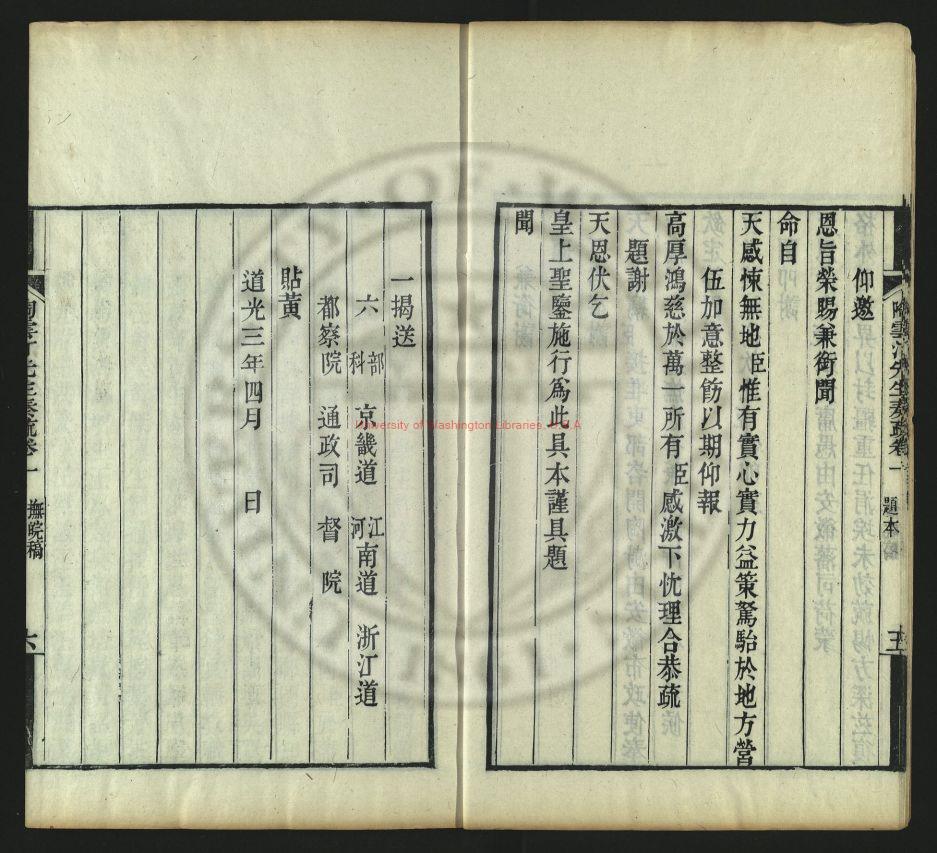 陶雲汀先生奏疏卷一 題本 五
仰邀
恩旨榮賜兼銜聞
命自
天感悚無地臣惟有實心實力益策駑駘於地方營
伍加意整飭以期仰報
高厚鴻慈於萬一所有臣感激下忱理合恭疏
題謝
天恩伏乞
皇上聖鑒施行為此具本謹具題
聞
一揭送
六部科 京畿道 江河南道 浙江道
都察院 通政司 督院
貼黃
道光三年四月 日
陶雲汀先生奏疏卷一 撫皖稿 六
University of Washington Libraries, USA